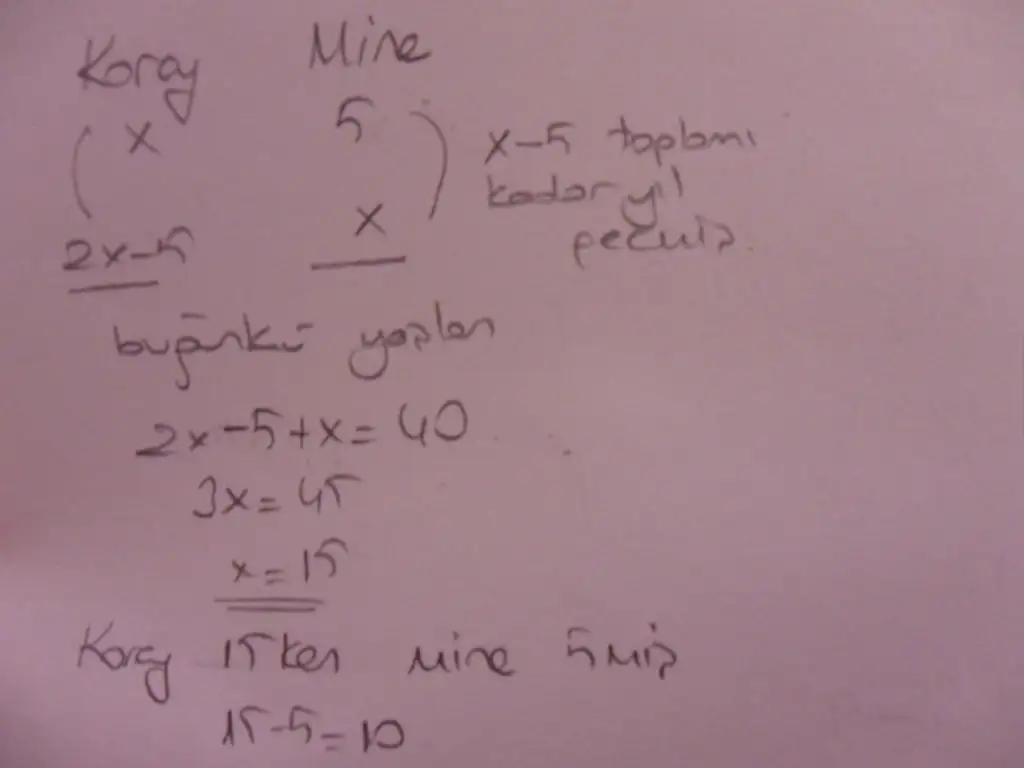 Koray Mine
x 5 x-5 toplamı
kadar yıl
2x-5 x geçmiş.
bugünkü yaşları
2x-5+x=40
3x=45
x=15
Koray 15ken Mine 5miş
15-5=10